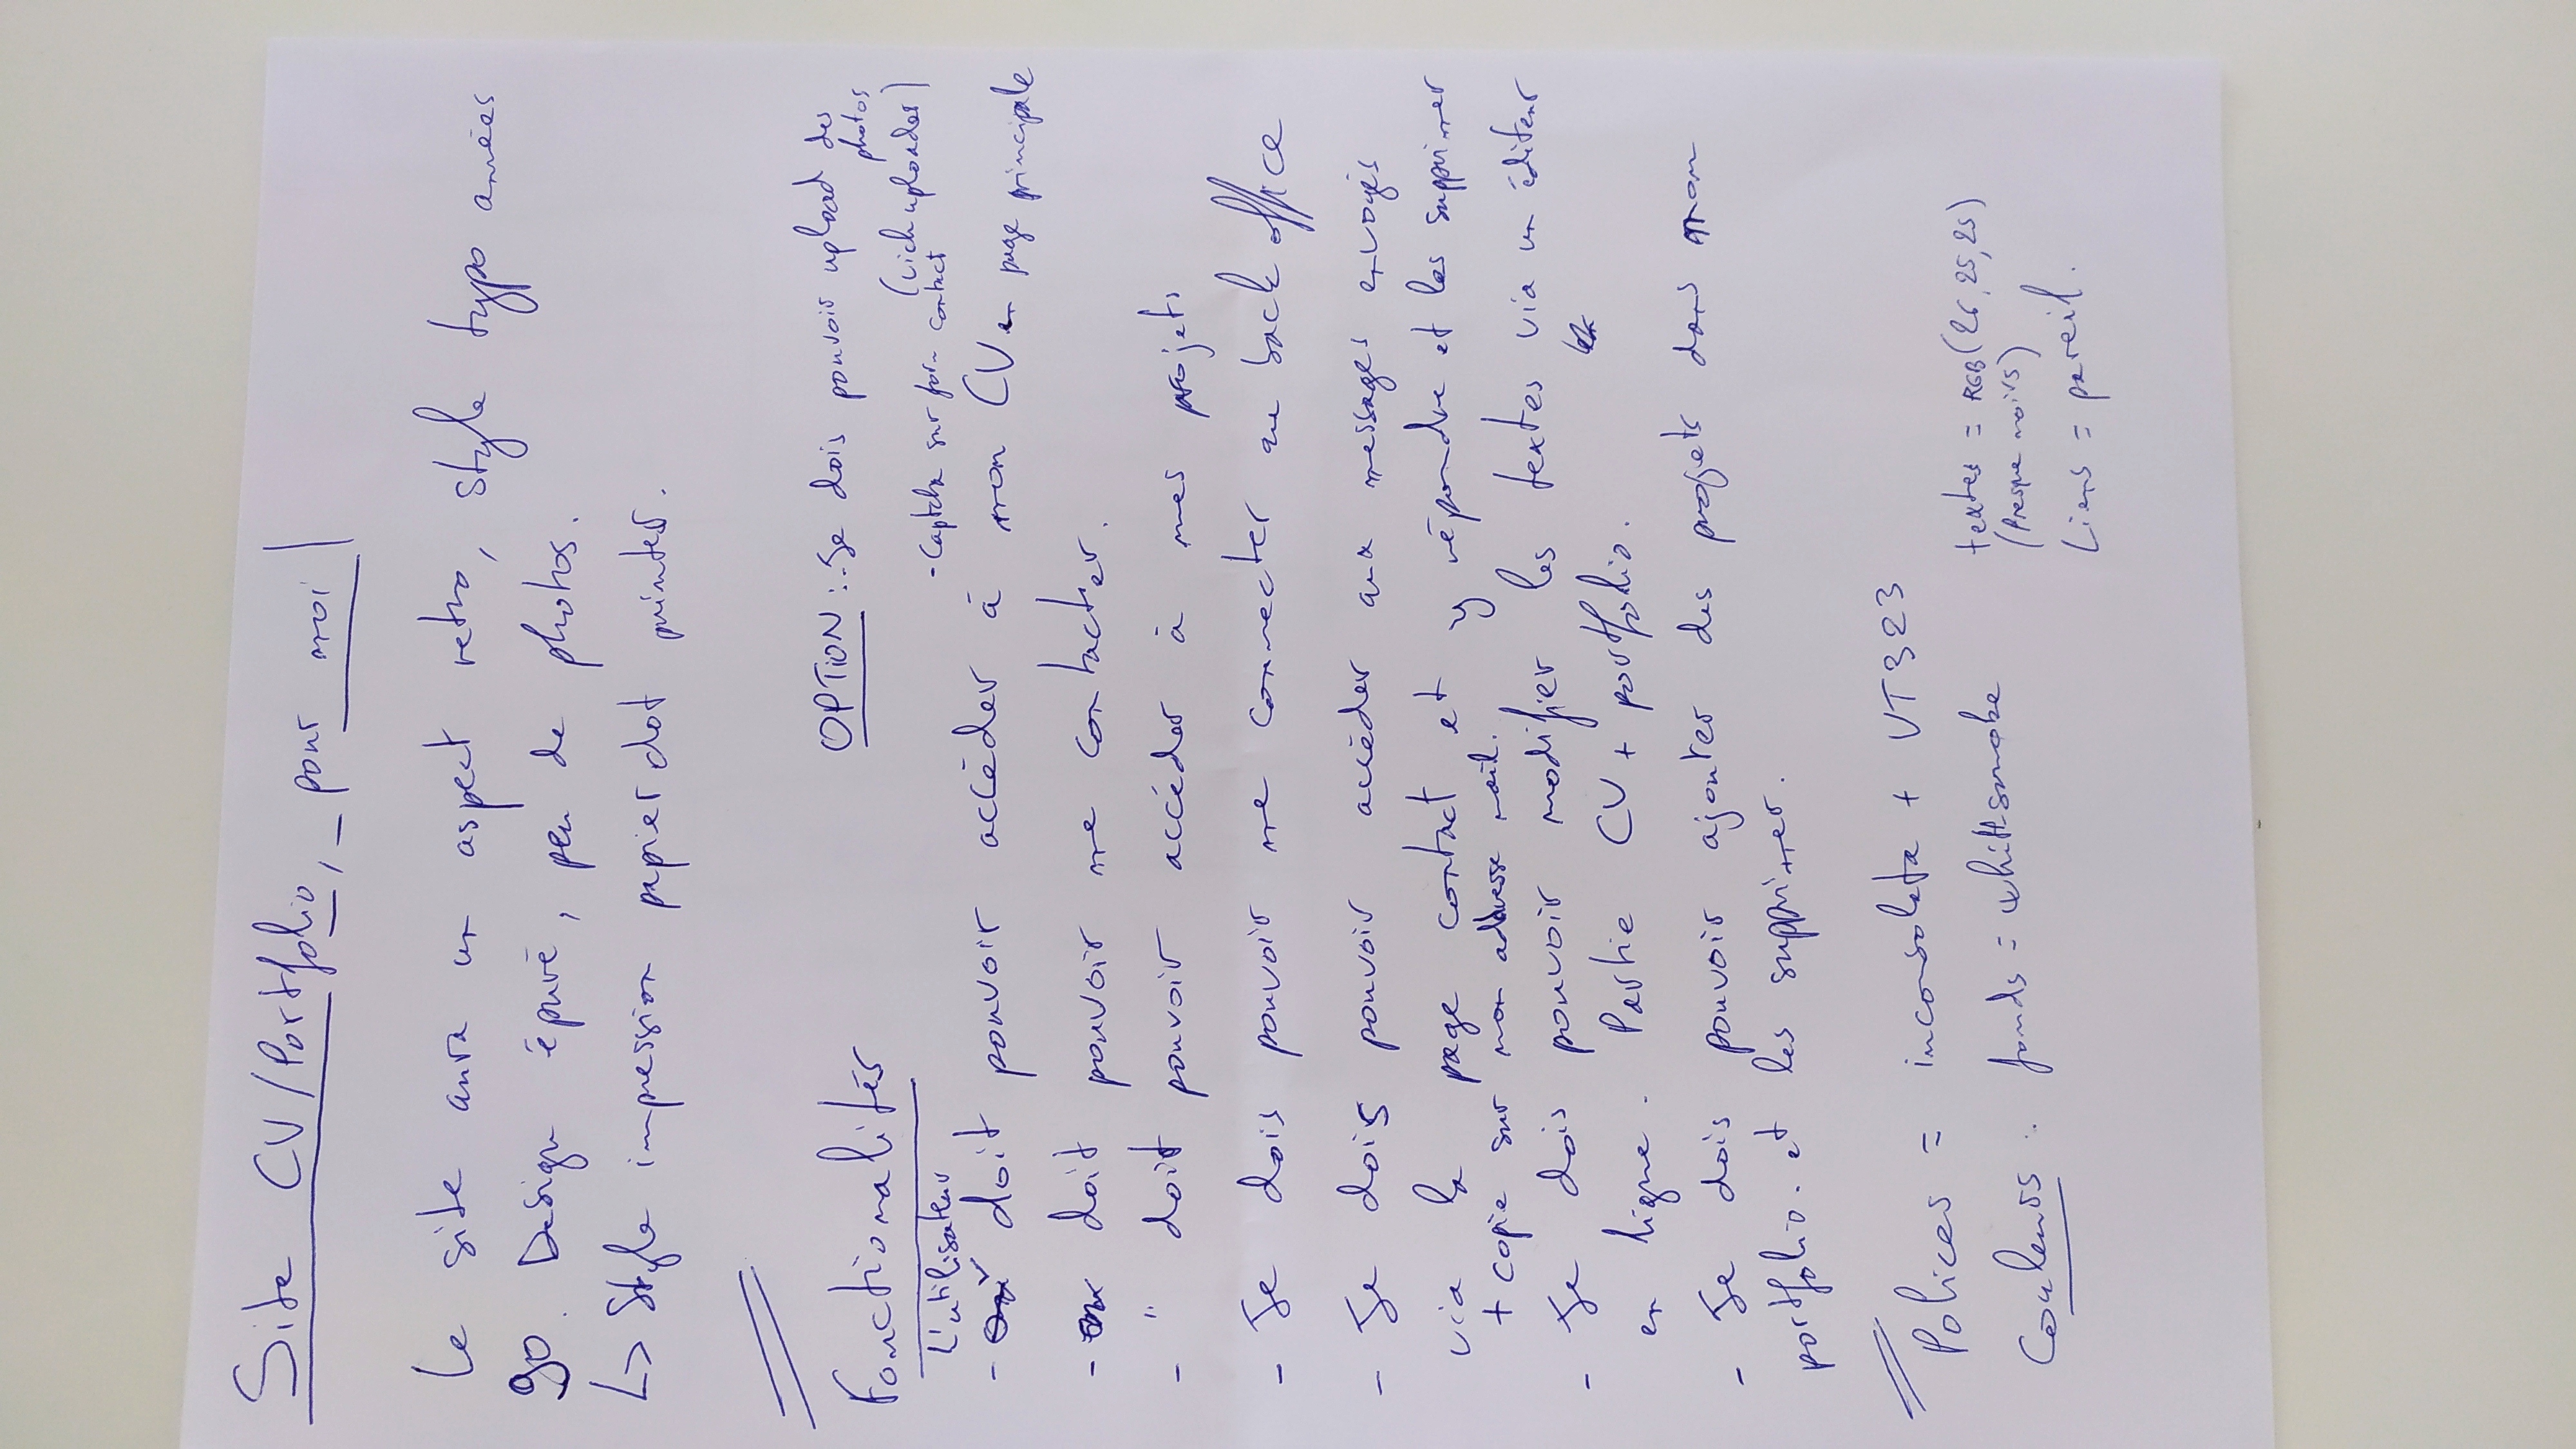 Site CV/Portfolio, - pour moi
Le site aura un aspect retro, style typo années
90. Design épuré, peu de photos.
L> Style impression papier dot printer.
Fonctionalités
OPTION : - Je dois pouvoir upload des photos
(vich uploader)
- Captcha sur form contact
L'utilisateur
- doit pouvoir accéder à mon CV en page principale
- doit pouvoir me contacter.
- " doit pouvoir accéder à mes projets
- Je dois pouvoir me connecter au back office
- Je dois pouvoir accéder aux messages envoyés
via la page contact et y répondre et les supprimer
+ copie sur mon addresse mail.
- Je dois pouvoir modifier les textes via un éditeur
en ligne. Partie CV + portfolio.
- Je dois pouvoir ajouter des projets dans mon
portfolio. et les supprimer.
Polices = inconsolata + VT323
Couleurs : fonds = whitesmoke
textes = RGB(25,25,25)
(Presque noirs)
Liens = pareil.